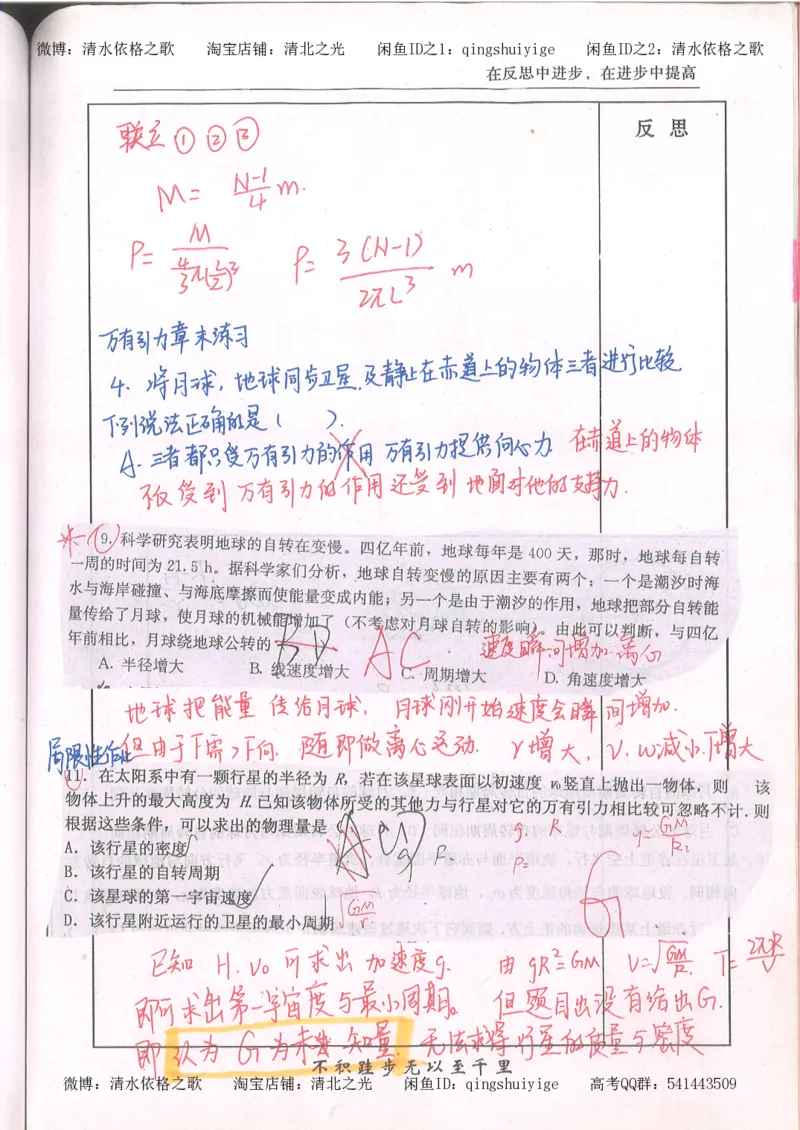 微博：清水依格之歌 淘宝店铺：清北之光 闲鱼ID之1：qingshuiyige 闲鱼ID之2：清水依格之歌
在反思中进步，在进步中提高
反 思
联立 ① ② ③
M = N-1/4 m.
ρ = M / 4/3π(L/2)³ ρ = 3(N-1) / 2πL³ m
万有引力章末练习
4. 将月球，地球同步卫星，及静止在赤道上的物体三者进行比较，
下列说法正确的是（ ）.
A. 三者都只受万有引力的作用 万有引力提供向心力 在赤道上的物体
不仅受到万有引力的作用还受到地面对他的支持力.
9. 科学研究表明地球的自转在变慢。四亿年前，地球每年是 400 天，那时，地球每自转
一周的时间为 21.5 h。据科学家们分析，地球自转变慢的原因主要有两个：一个是潮汐时海
水与海岸碰撞、与海底摩擦而使能量变成内能；另一个是由于潮汐的作用，地球把部分自转能
量传给了月球，使月球的机械能增加了（不考虑对月球自转的影响）。由此可以判断，与四亿
年前相比，月球绕地球公转的 BD AC. 速度瞬间增加 离心
A. 半径增大 B. 线速度增大 C. 周期增大 D. 角速度增大
地球把能量传给月球，月球刚开始速度会瞬间增加.
但由于F需>F向. 随即做离心运动. r增大, V. ω减小.T增大
局限性作业
11. 在太阳系中有一颗行星的半径为 R，若在该星球表面以初速度 v₀竖直上抛出一物体，则 该
物体上升的最大高度为 H.已知该物体所受的其他力与行星对它的万有引力相比较可忽略不计.则
根据这些条件，可以求出的物理量是 ACD
g. R GM/R²
A．该行星的密度
B．该行星的自转周期
C．该星球的第一宇宙速度
D．该行星附近运行的卫星的最小周期 GM/r
已知 H, v₀ 可求出加速度g. 由 gR²=GM V=√GM/R. T= 2πR/V
即可求出第一宇宙度与最小周期。 但题目出没有给出G.
即认为G为未知量. 无法求得行星的质量与密度
不积跬步无以至千里
微博：清水依格之歌 淘宝店铺：清北之光 闲鱼ID：qingshuiyige 高考QQ群：541443509